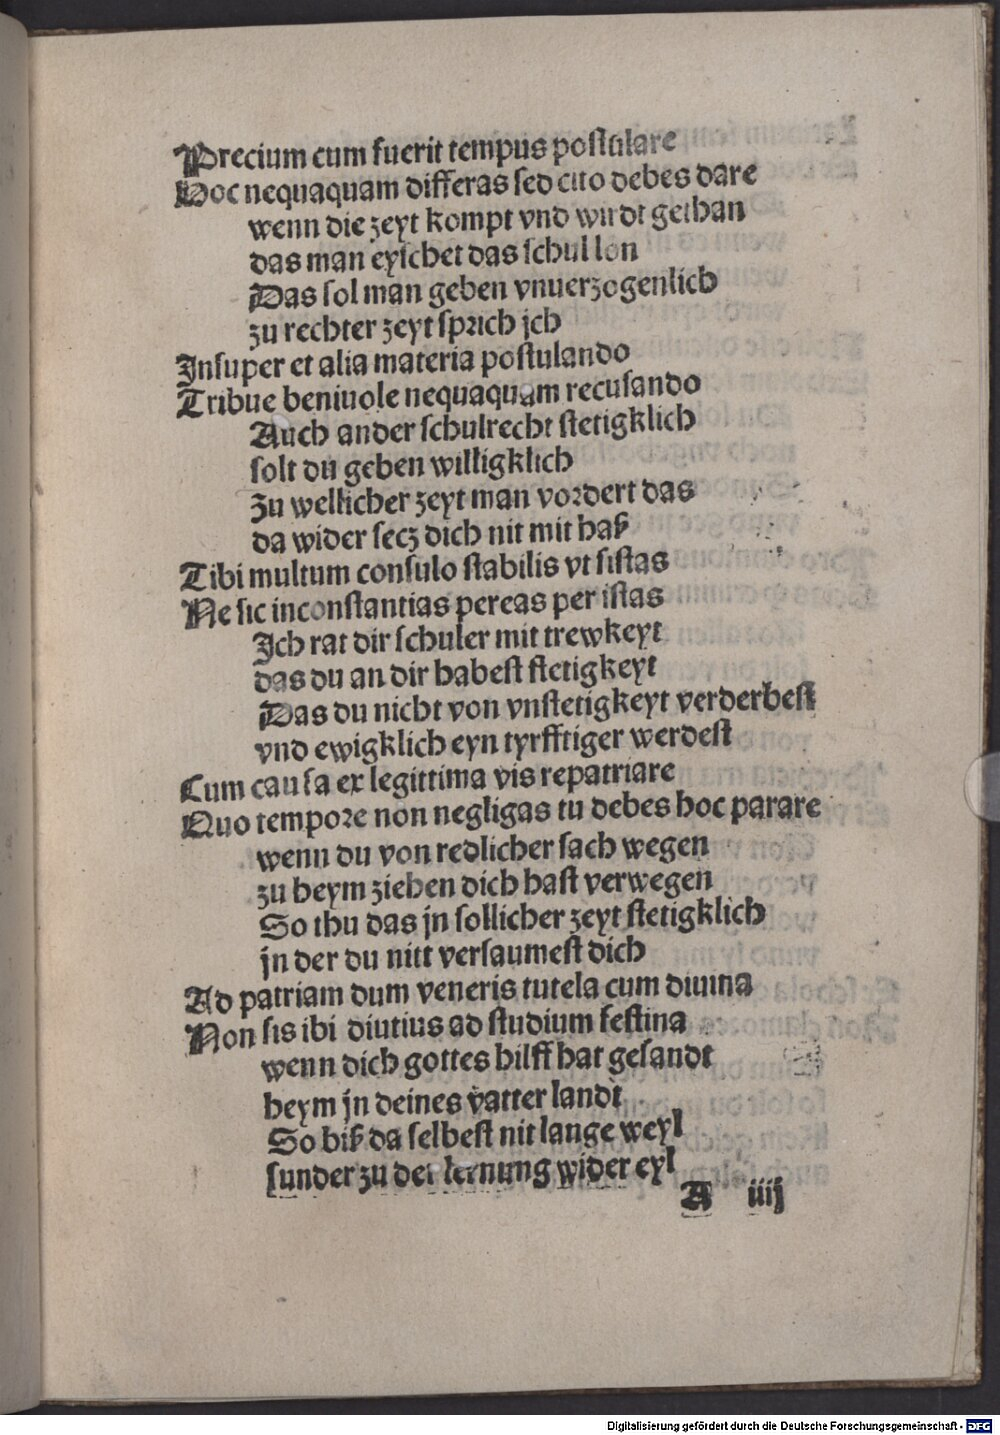 Precium cum fuerit tempus postulare
Hoc nequaquam differas sed cito debes dare
wenn die zeyt kompt vnd wirdt gethan
das man eyschet das schul lon
Das sol man geben vnuerzogenlich
zu rechter zeyt sprich jch
Insuper et alia materia postulando
Tribue beniuole nequaquam recusando
Auch ander schulrecht stetigklich
solt du geben willigklich
Zu wellicher zeyt man vordert das
da wider secz dich nit mit haß
Tibi multum consulo stabilis vt sistas
Ne sic inconstantias pereas per istas
Ich rat dir schuler mit trewkeyt
das du an dir habest stetigkeyt
Das du nicht von vnstetigkeyt verderbest
vnd ewigklich eyn tyrfftiger werdest
Cum causa ex legittima vis repatriare
Quo tempore non negligas tu debes hoc parare
wenn du von redlicher sach wegen
zu heym ziehen dich hast verwegen
So thu das jn sollicher zeyt stetigklich
jn der du nitt versaumest dich
Ad patriam dum veneris tutela cum diuina
Non sis ibi diutius ad studium festina
wenn dich gottes hilff hat gesandt
heym jn deines vatter landt
So biß da selbest nit lange weyl
sunder zu der lernung wider eyl
A iiij
Digitalisierung gefördert durch die Deutsche Forschungsgemeinschaft - DFG